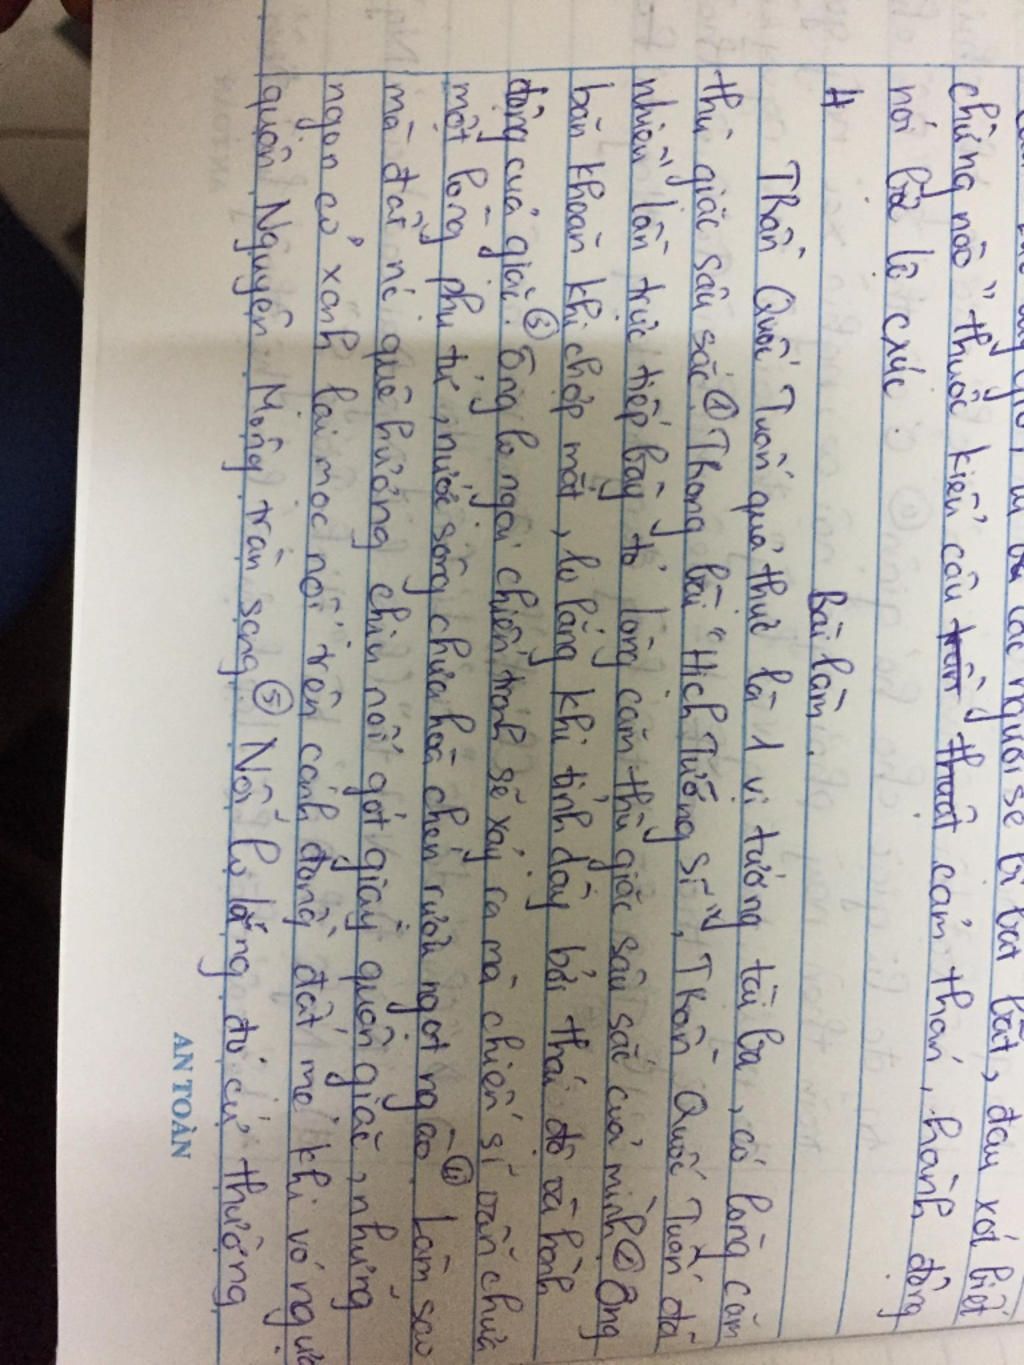 chừng nào" thuộc kiểu câu cảm thán, hành động
nói bộc lộ cxúc.
4
Bài làm.
Trần Quốc Tuấn quả thực là 1 vị tướng tài ba, có lòng căm
thù giặc sâu sắc. ① Trong bài "Hịch Tướng Sĩ", Trần Quốc Tuấn đã
nhiều lần trực tiếp bày tỏ lòng căm thù giặc sâu sắc của mình ② Ông
băn khoăn khi chợp mắt, lo lắng khi tỉnh dậy bởi thái độ và hành
động của giặc. ③ Ông lo ngại chiến tranh sẽ xảy ra mà chiến sĩ vẫn chưa
một lòng phụ tử, nước sông chưa hoà chén rượu ngọt ngào. ④ Làm sao
mà đất nc quê hương chịu nổi gót giày quân giặc, những
ngọn cỏ xanh lại mọc nổi trên cánh đồng đất mẹ khi vó ngựa
quân Nguyên Mông tràn sang. ⑤ Nỗi lo lắng đó cứ thường
AN TOÀN